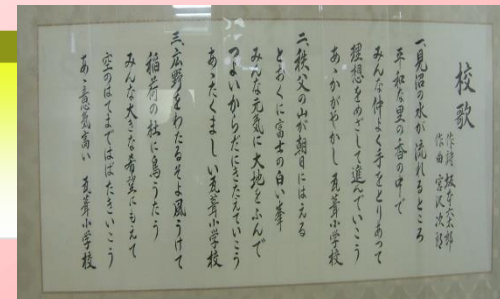 校歌
作詩 坂本六太郎
作曲 宮沢次郎
一、見沼の水が流れるところ
平和な里の森の中で
みんな仲よく手をとりあって
理想をめざして進んでいこう
あゝかがやかし 瓦葺小学校
二、秩父の山が朝日にはえる
とおくに富士の白い峯
みんな元気に大地をふんで
つよいからだにきたえていこう
あゝたくましい 瓦葺小学校
三、広野をわたるそよ風うけて
稲荷の杜に鳥うたう
みんな大きな希望にもえて
空のはてまではばたきいこう
あゝ意気高い 瓦葺小学校